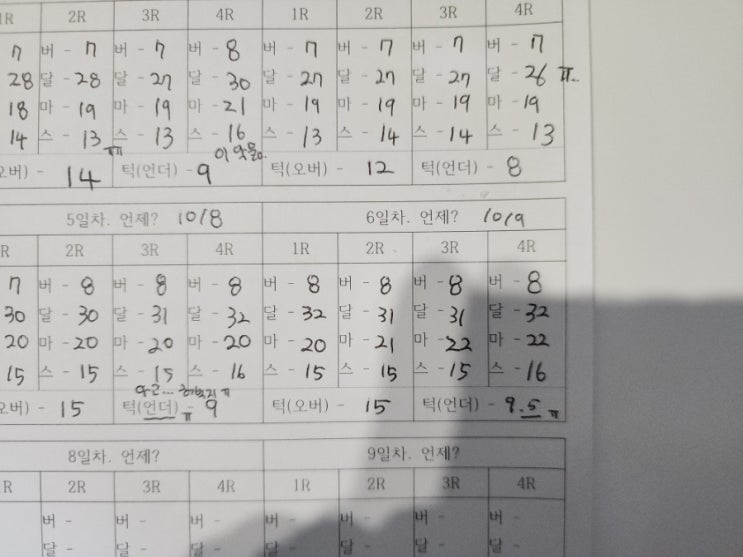 1R 2R 3R 4R 1R 2R 3R 4R
7 버 - 7 버 - 7 버 - 8 버 - 7 버 - 7 버 - 7 버 - 7
28 달 - 28 달 - 27 달 - 30 달 - 27 달 - 27 달 - 27 달 - 26 ㅠ..
18 마 - 19 마 - 19 마 - 21 마 - 19 마 - 19 마 - 19 마 - 19
14 스 - 13 ㅠ 스 - 13 스 - 16 스 - 13 스 - 14 스 - 14 스 - 13
오버) - 14 턱(언더) - 9 턱(오버) - 12 턱(언더) - 8
5일차. 언제? 10/8 6일차. 언제? 10/9
R 2R 3R 4R 1R 2R 3R 4R
7 버 - 8 버 - 8 버 - 8 버 - 8 버 - 8 버 - 8 버 - 8
30 달 - 30 달 - 31 달 - 32 달 - 32 달 - 31 달 - 31 달 - 32
20 마 - 20 마 - 20 마 - 20 마 - 20 마 - 21 마 - 22 마 - 22
15 스 - 15 스 - 15 스 - 16 스 - 15 스 - 15 스 - 15 스 - 16
오버) - 15 턱(언더) - 9 ㅠ 턱(오버) - 15 턱(언더) - 9.5 ㅠ
8일차. 언제? 9일차. 언제?
1R 2R 3R 4R 1R 2R 3R 4R
버 - 버 - 버 - 버 - 버 - 버 - 버 -
달 - 달 - 달 - 달 - 달 - 달 - 달 -